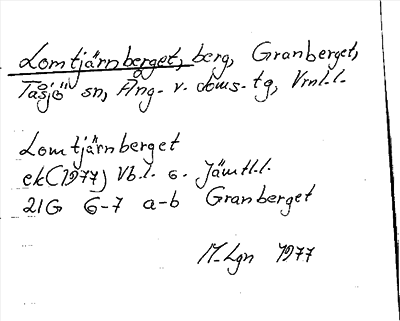 Lomtjärnberget, berg, Granberget,
Tåsjö sn, Ång. v. doms. tg, Vrnl.l.
Lomtjärnberget
ek(1977) Vb.l. o. Jämtl.l.
21G 6-7 a-b Granberget
M. Lgn 1977